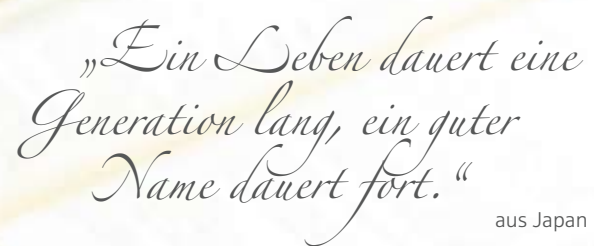 „Ein Leben dauert eine
Generation lang, ein guter
Name dauert fort.“
aus Japan